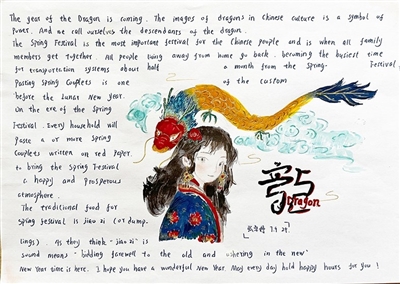 The year of the Dragon is coming. The images of dragons in Chinese culture is a symbol of
power. And we call ourselves the descendants of the dragon.
The Spring Festival is the most important festival for the Chinese people and is when all family
members get together. All people living away from home go back. becoming the busiest time
for transportation systems about half a month from the Spring- Festival.
Pasting Spring Couplets is one of the custom
before the Lunar New year.
On the eve of the Spring
Festival. Every household will
Paste a or more Spring
Couplets written on red paper.
to bring the Spring Festival
a happy and prosperous
atmosphere.
The traditional food for
Spring festival is jiao zi (or dump
lings). As they think "jiao zi" is
sound means "bidding farewell to the old and ushering in the new"
New Year time is here. I hope you have a wonderful New Year. May every day hold happy hours for you!
龍
Dragon